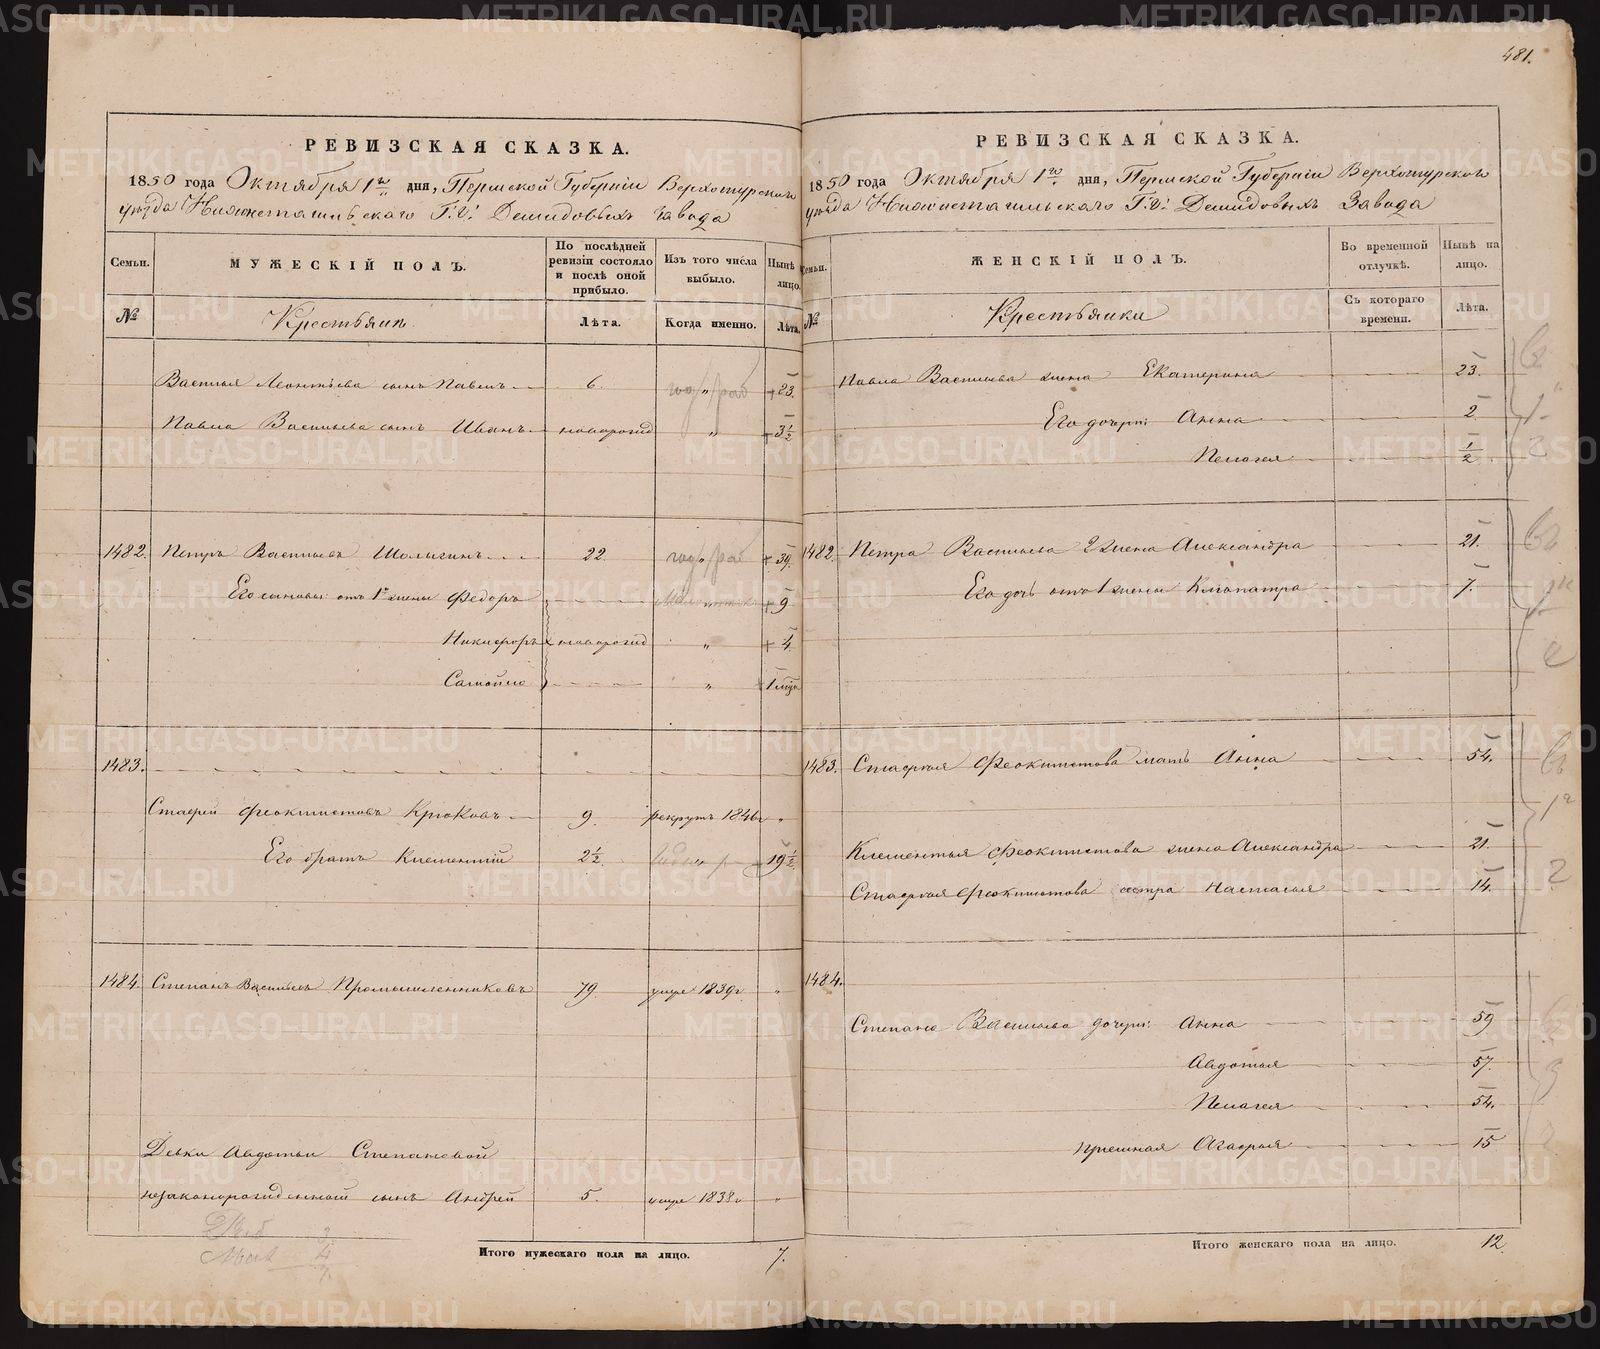 481.
РЕВИЗСКАЯ СКАЗКА.
1850 года Октября 1го дня, Пермской Губерніи Верхотурскаго
уѣзда Нижнетагильскаго Г.г. Демидовыхъ завода
Семьи. МУЖЕСКІЙ ПОЛЪ. По послѣдней ревизіи состояло и послѣ оной прибыло. Изъ того числа выбыло. Нынѣ на лицо.
№ Крестьяне. Лѣта. Когда именно. Лѣта.
Василья Леонтьева сынъ Павелъ 6. год/раб 23.
Павла Васильева сынъ Иванъ новорожд " 3½
1482. Петръ Васильевъ Шолыгинъ 22. год/раб 39.
Его сыновья отъ 1й жены Федоръ " 9
Никифоръ новорожд " 4
Самойло " 1 мѣся
1483.
Стафей Феоктистовъ Крюковъ 9. рекрутъ 1846г "
Его братъ Клементій 2½ " 19½
1484. Степанъ Васильевъ Промышленниковъ 79. умре 1839г "
Девки Авдотьи Степановой
незаконорожденной сынъ Андрей 5. умре 1838г "
Раб 3
4
7.
Итого мужескаго пола на лицо. 7.
РЕВИЗСКАЯ СКАЗКА.
1850 года Октября 1го дня, Пермской Губерніи Верхотурскаго
уѣзда Нижнетагильскаго Г.г. Демидовыхъ Завода
Семьи. ЖЕНСКІЙ ПОЛЪ. Во временной отлучкѣ. Нынѣ на лицо.
№ Крестьянки Съ котораго времени. Лѣта.
Павла Васильева жена Екатерина 23.
Его дочери: Анна 2
Пелагея ½
1482. Петра Васильева 2 жена Александра 21.
Его дочь отъ 1 жены Клопатра 7.
1483. Стафия Феоктистова мать Анна 54.
Клементья Феоктистова жена Александра 21.
Стафия Феоктистова сестра Настасья 14.
1484.
Степана Васильева дочери: Анна 59
Авдотья 57.
Пелагея 54.
приемная Агафья 15
Итого женскаго пола на лицо. 12.
METRIKI.GASO-URAL.RU